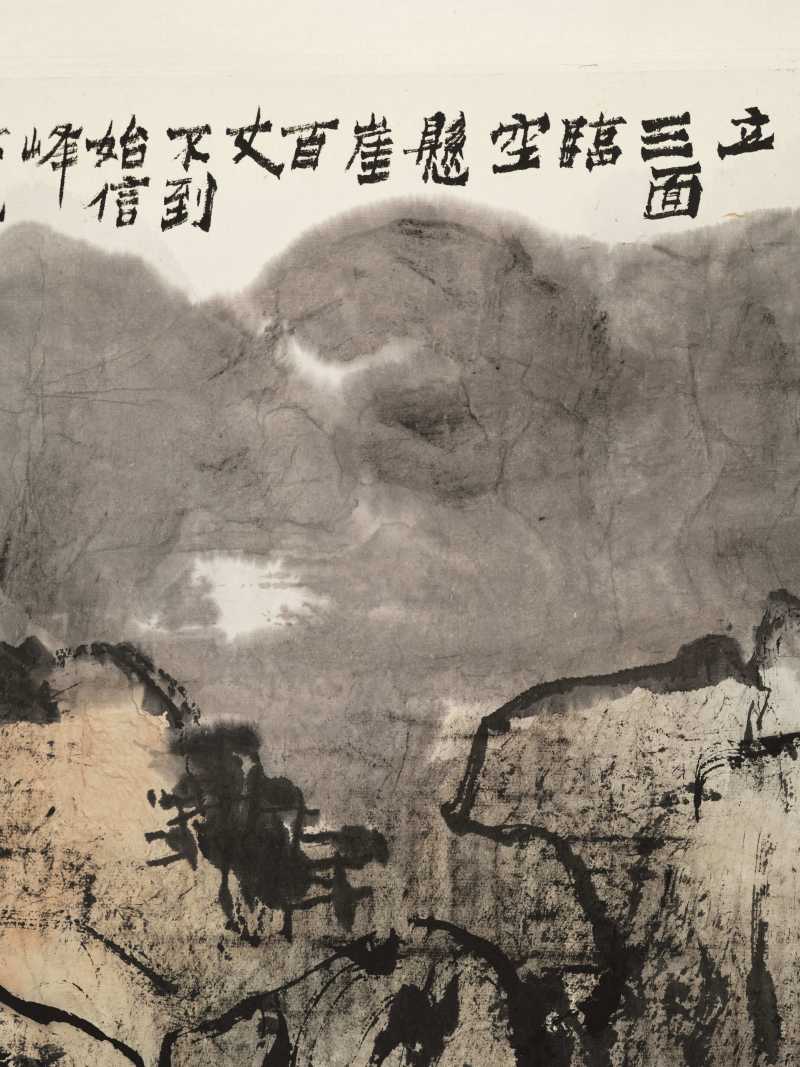 立三面臨空懸崖百丈不到始信峰